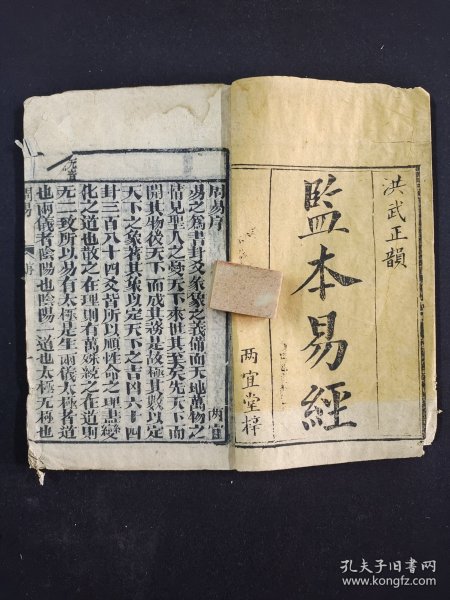 洪武正韻
監本易經
两宜堂梓
周易序
两宜
易之為書卦爻彖象之義備而天地萬物之
情見聖人之憂天下來世其至矣先天下而
開其物後天下而成其務是故極其數以定
天下之象著其象以定天下之吉凶六十四
卦三百八十四爻皆所以順性命之理盡變
化之道也散之在理則有萬殊統之在道則
无二致所以易有太極是生兩儀太極者道
也兩儀者陰陽也陰陽一道也太極无極也
周易
序
孔夫子旧书网
www.kongfz.com